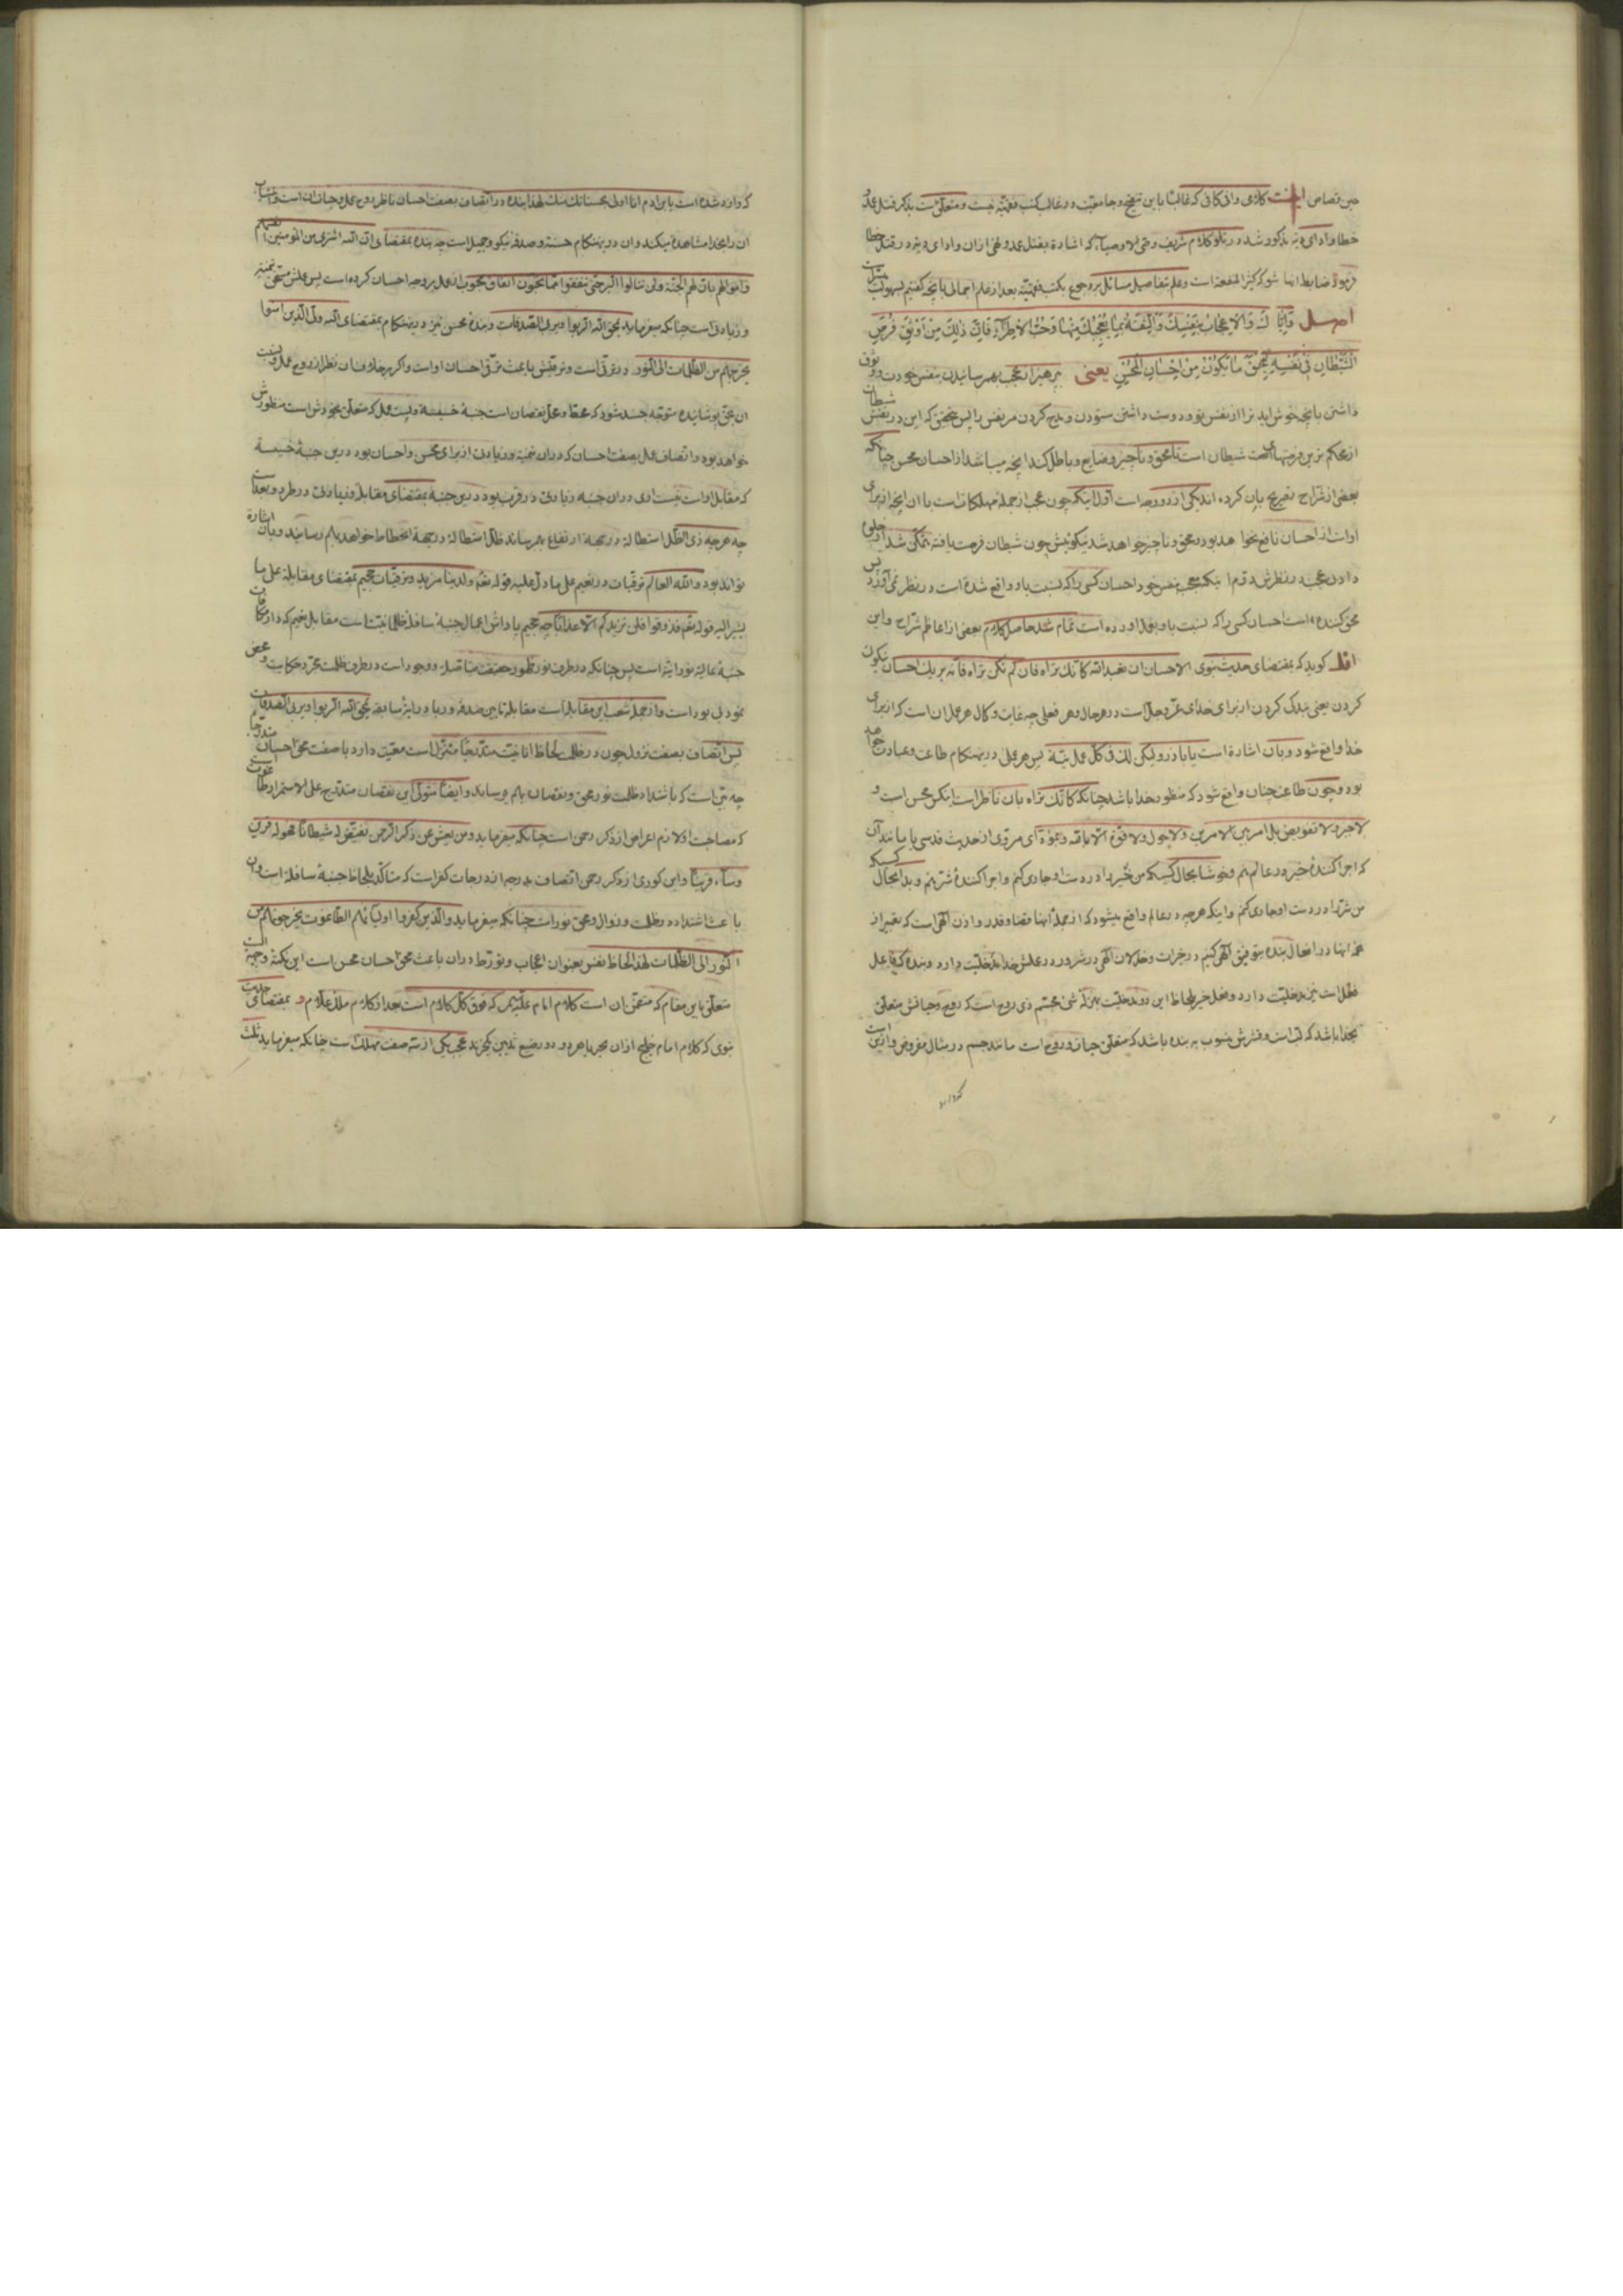 حین قصاص اینست کلامی وافی کافی که غالبًا باین تنقیح و جامعیت در غالب کتب فقهیّه نیست و متعلّق است بذکر قتل عمد و
خطا و ادای دیه مذکور شد در تلو کلام شریف وصیّ الاوصیآء که اشاره بقتل عمد و نهی از ان و ادای دیه در قتل خطا
فرموده ضابط اینها شو که کثیر المنفعة است و علم بتفاصیل مسائل بر رجوع بکتب فقهیّه بعد از علم اجمالی بانچه گفتیم بسهولت میسّر است
اصل وَاِیّاكَ وَالْاِعْجابَ بِنَفْسِكَ وَالثِّقَةَ بِما یُعْجِبُكَ مِنْها وَحُبَّ الْاِطْرآءِ فَاِنَّ ذلِكَ مِنْ اَوْثَقِ فُرَصِ
الشَّیْطانِ فی نَفْسِهِ لِیَمْحَقَ ما یَكُونُ مِنْ اِحْسانِ الْمُحْسِنِ یعنی بپرهیز از عجب بهم رسانیدن بنفس خودت و وثوق
داشتن بانچه خوش اید ترا از نفس تو و دوست داشتن ستودن و مدح کردن مر نفس را پس بتحقیق که این در نفس شیطان
از محکم ترین فرصتهای شیطان است تا محق و ناچیز و ضایع و باطل کند انچه میباشد از احسان محسن چنانکه
بعضی از شراح تصریح بان کرده اند یکی از دو وجه است اول اینکه چون عجب از جمله مهلکات است با ان انچه از برای
اوست از احسان نافع نخواهد بود و محق و ناچیز خواهد شد نیکوئیش چون شیطان فرصت یافته متمکّن شد از جلوه
دادن عجب در نظرش دوم اینکه معجب بنفس خود احسان کسی را که نسبت باو واقع شده است در نظر نمی آورد پس
محق کننده است احسان کسی را که نسبت باو بفعل اورده است تمام شد حاصل کلام بعضی از اعاظم شراح و این
اقل کوید که بمقتضای حدیث نبوی الاحسان ان تعبد الله کانّك تراه فان لم تکن تراه فانّه یریك احسان نیکوئی
کردن یعنی بندگی کردن از برای خدای عزّ و جلّ است در هر حال و هر فعلی چه غایت و کمال هر عمل ان است که از برای
خدا واقع شود و بان اشاره است یا باذر ولیکن لك فی کلّ عمل نیّة پس هر عملی درینهنکام طاعت و عبادت خواهد
بود و چون طاعت چنان واقع شود که منظور خدا باشد چنانکه کانّك تراه بان ناظر است اینکس محسن است و
لا جبر و لا تفویض بل امر بین الامرین و لا حول و لا قوّة الّا بالله و بمؤدّای مروی از حدیث قدسی یا مانند آن
که اجرا کنندهٔ خیر در عالم منم و خوشا بحال کسیکه من خیر را در دست او جاری کنم و اجرا کنندهٔ شر منم و بدا بحال کسیکه
من شرّ را در دست او جاری کنم و اینکه هرچه در عالم واقع میشود که از جملهٔ اینها قضا و قدر و اذن الهی است که تعبیر از
همه اینها در افعال بنده بتوفیق الهی کنیم در خیرات و خذلان الهی در شرور در عملش خدا را مدخلیّت دارد و بنده که فاعل
فعل است نیز مدخلیّت دارد و فعل خیر بلحاظ این دو مدخلیّت بمنزلهٔ شیء مجسّم ذی روح است که روح و حیاتش متعلّق
بخدا باشد که لبّ است و قشرش منسوب به بنده باشد که متعلّق حیات و روح است مانند جسم در مثال مفروض و ازین است
که وارد
که وارد شده است یابن ادم انا اولی بحسناتك منك لهذا بنده در اتّصاف بصفت احسان ناظر بروح عمل و حیات ان است و انتساب
ان را بخدا مشاهده میکند و ان درینهنکام حسنه و صدقه نیکو و جمیل است چه بنده بمقتضای انّ الله اشتری من المؤمنین انفسهم
و اموالهم بانّ لهم الجنّة و لن تنالوا البرّ حتّی تنفقوا ممّا تحبّون انفاق محبوب از عمل بر وجه احسان کرده است پس عملش مستحق تنمیه
و زیادتی است چنانکه میفرماید یمحق الله الربوا و یربی الصّدقات و بندهٔ محسن نیز درینهنکام بمقتضای الله ولیّ الّذین امنوا
یخرجهم من الظّلمات الی النّور در ترقی است و ترقیش باعث ترقی احسان اوست و اکر برخلاف ان نظر از روح عمل و نسبت
ان بحقّ پوشانیده متوجّه جسد شود که محطّ و محلّ نقصان است جنبهٔ خسیسه و پست عمل که متعلّق بخودش است منظورش
خواهد بود و اتّصاف عمل بصفت احسان که در ان تنمیه و زیادتی از برای محسن و احسان بود درین جنبهٔ خسیسه
که مقابل اوست نیست و ان جنبه زیادتی در قرب بود درین جنبه بمقتضای مقابله زیادتی در طرد و بعد است
چه هرچه ذی الظّلّ استطاله در جهة ارتفاع بهم رساند ظلّ استطاله در جهة انحطاط خواهد بهم رسانید و بان اشاره
تواند بود و الله العالم ترقیات در نعیم علی ما دلّ علیه قوله تعالی و لدینا مزید و ترقیات جحیم بمقتضای مقابله علی ما
یشیر الیه قوله تعالی فذوقوا فلن نزیدکم الّا عذابًا چه جحیم پاداش اعمال جنبهٔ سافلهٔ ظلمانیت است مقابل نعیم که دار مکافات
جنبهٔ عالیهٔ نورانیّه است پس چنانکه در طرف نور ظهور حقیقت متاصّله و وجود است در طرف ظلمت مجرّد حکایت و محض
نمود بی بود است و از جملهٔ شعب این مقابله است مقابله مابین صدقه و ربا در ایهٔ سابقه یمحق الله الربوا و یربی الصّدقات
پس اتّصاف بصفت نزول چون در ظلمت بلحاظ انانیت متدرّجًا متنزّل است معیّت دارد با صفت محق احسان متدرّجًا
چه بیّن است که باشتداد ظلمت نور محق و نقصان بهم میرساند و ایضًا متولّی این نقصان متدرّج علی الاستمرار طاغوت
که مصاحبت او لازم اعراض از ذکر رحمن است چنانکه میفرماید و من یعش عن ذکر الرّحمن نقیّض له شیطانًا فهو له قرین
و سآء قرینًا و این کوری از ذکر رحمن اتّصاف بدرجه از درجات کفر است که متاکّد بلحاظ جنبهٔ سافله است و ان
باعث اشتداد در ظلمت و زوال و محق نور است چنانکه میفرماید و الّذین کفروا اولیآئهم الطّاغوت یخرجونهم من
النّور الی الظّلمات لهذا لحاظ نفس بعنوان اعجاب و تورّط در ان باعث محق احسان محسن است این نکته وجیهه الست
متعلّق باین مقام که متضمّن ان است کلام امام علیه السلام که فوق کلّ کلام است بعد از کلام ملك علّام و بمقتضای حدیث
نبوی که کلام امام خلیج از ان بحر باهر و دو رضیع ثدیین یکجزند عجب یکی از سه صفت مهلك است چنانکه میفرماید ثلث